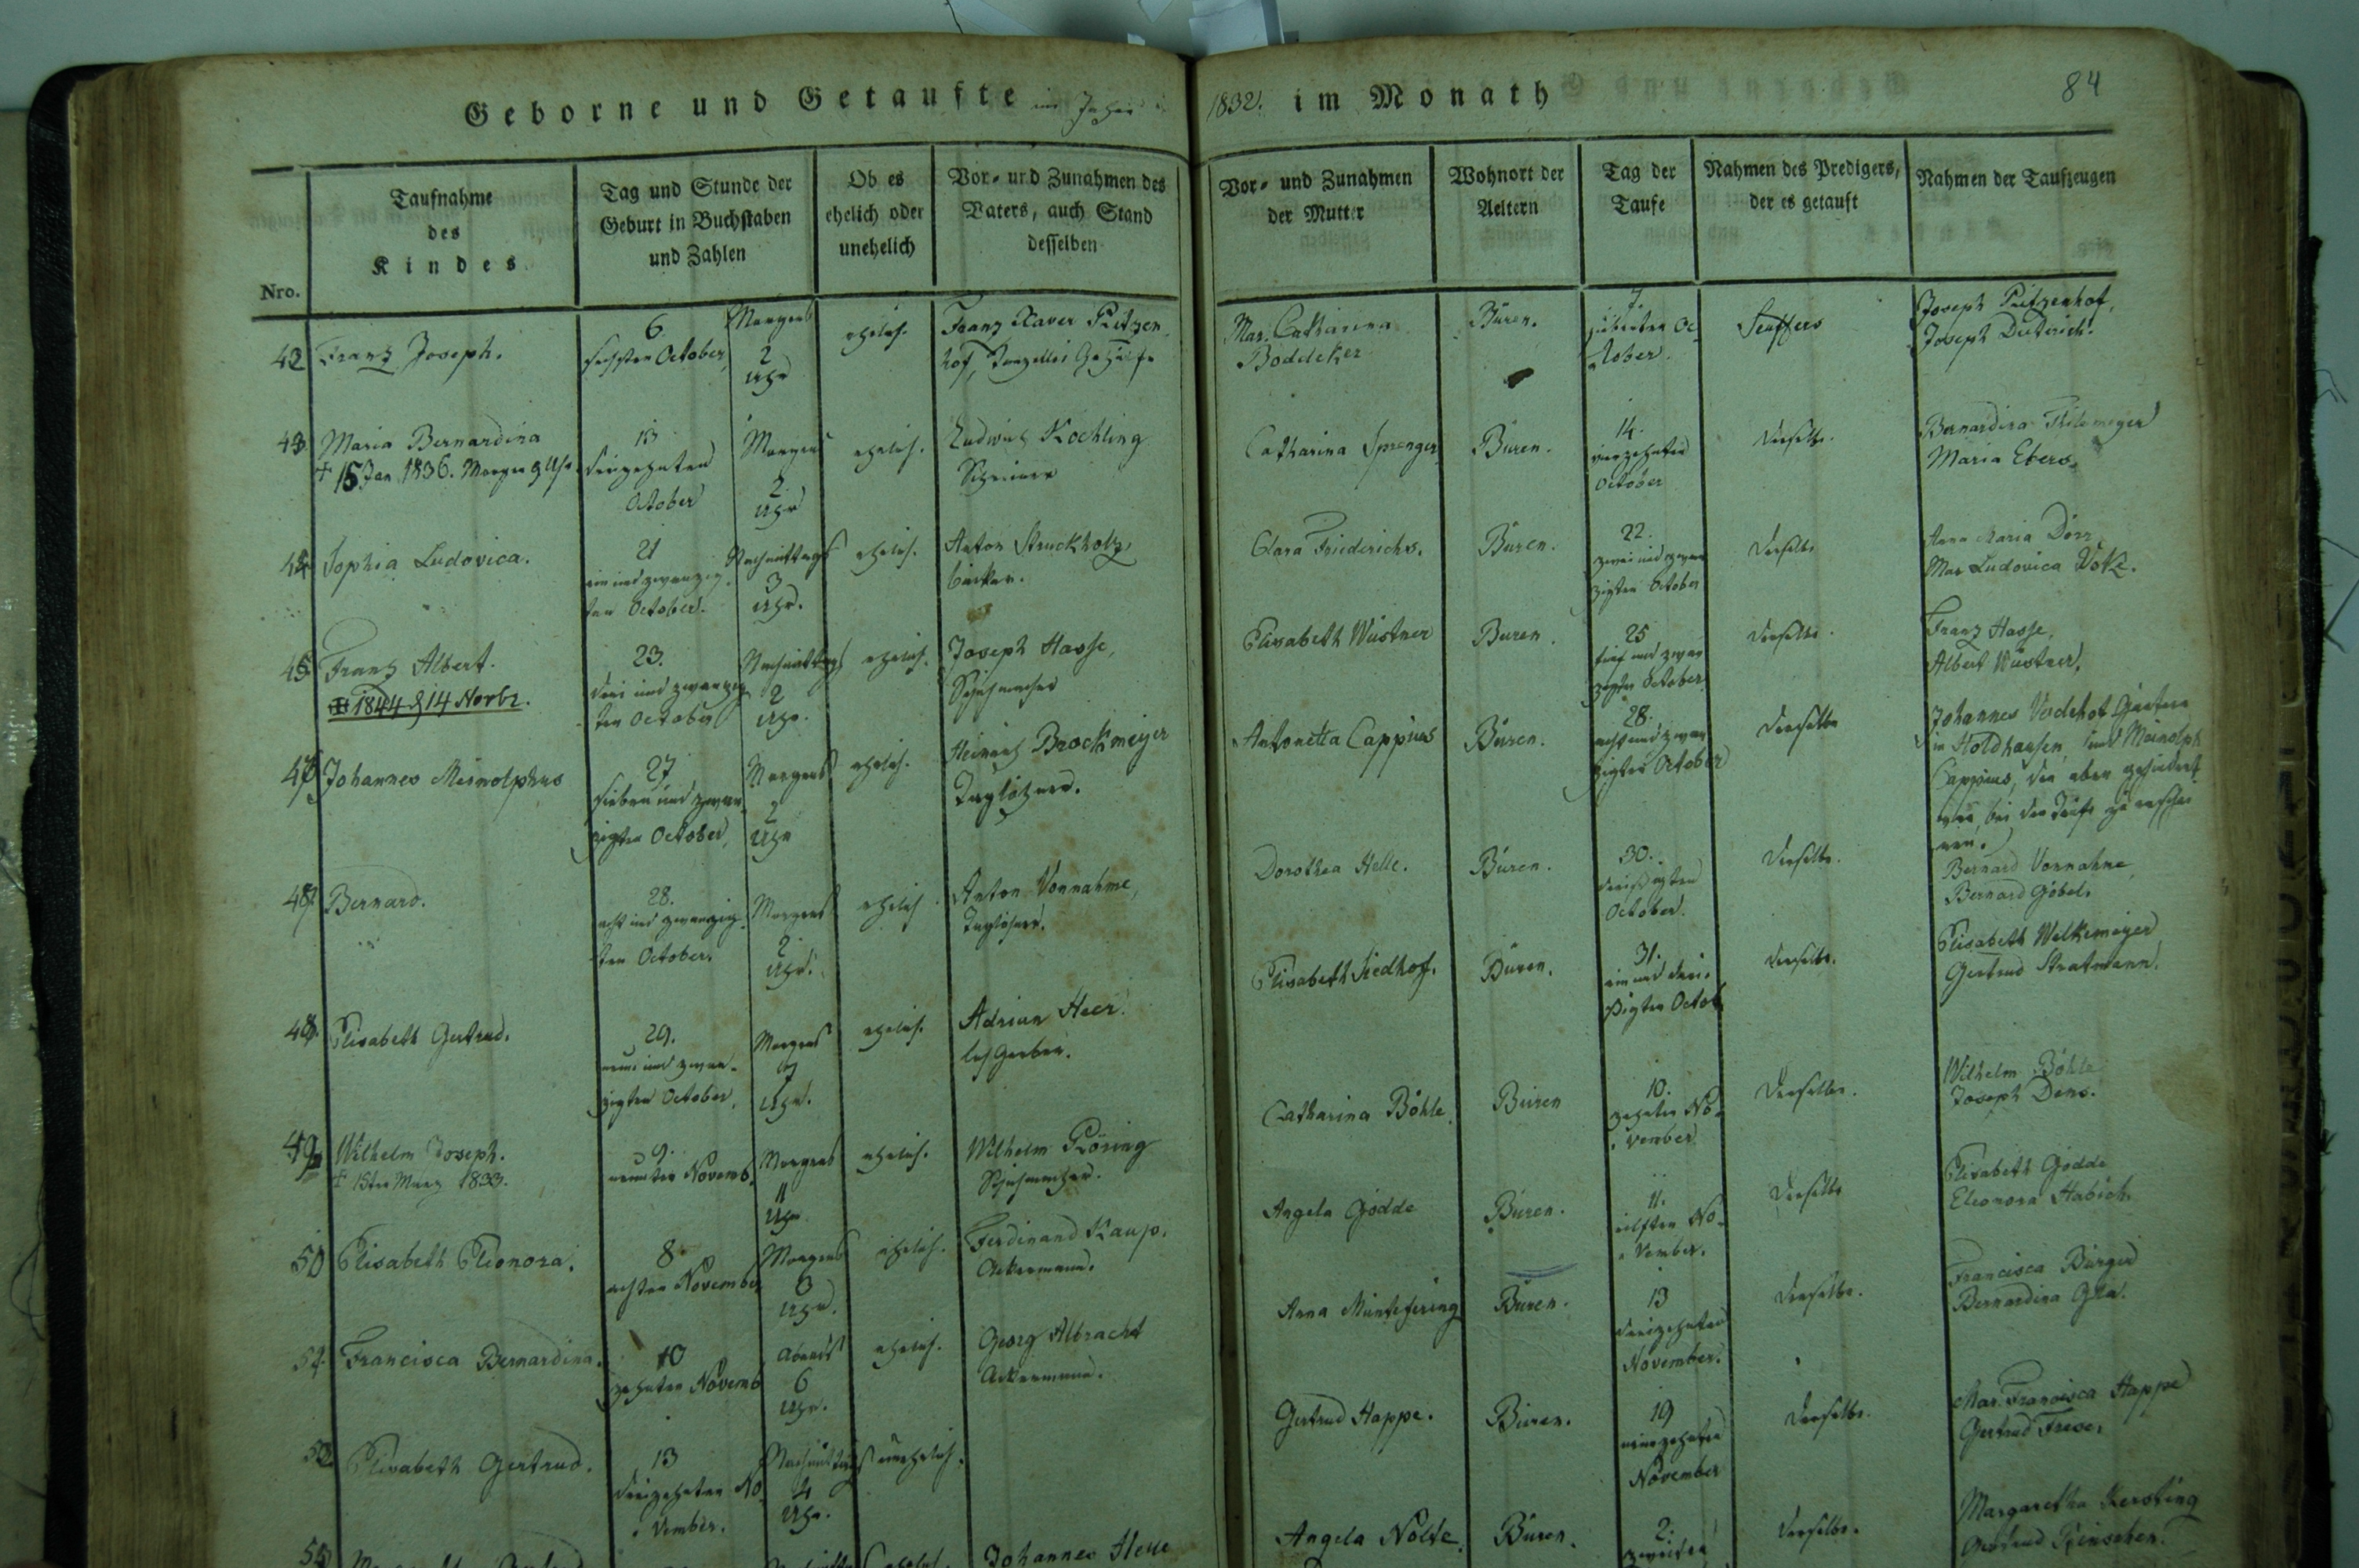 Geborne und Getaufte im Jahre 1832. im Monath
84
Nro.
Taufnahme des Kindes
Tag und Stunde der Geburt in Buchstaben und Zahlen
Ob es ehelich oder unehelich
Vor- und Zunahmen des Vaters, auch Stand desselben
Vor- und Zunahmen der Mutter
Wohnort der Aeltern
Tag der Taufe
Nahmen des Predigers, der es getauft
Nahmen der Taufzeugen
42 Franz Joseph. 6. sechsten October Morgens 2 Uhr ehelich. Franz Xaver Pritzen
hof, Gehülfe
Mar. Catharina Boddeker Büren. 7. siebenten October. Seuffers Joseph Pritzenhof, Joseph Dieterich.
43 Maria Bernardina 13 dreizehnten October Morgens 2 Uhr ehelich. Ludwig Kochling Schreiner
† 15 Jan 1836. Morgen 9 Uhr
Catharina Sprenger Büren. 14. vierzehnten October derselbe. Bernardina Maria Ebers.
44 Sophia Ludovica. 21 ein und zwanzigsten October. Nachmittags 3 Uhr. ehelich. Anton Struckholz, bäcker.
Clara Friederichs. Büren. 22. zwei und zwanzigsten October derselbe Anna Maria Dörr, Mar Ludovica Volke.
45 Franz Albert. 23. drei und zwanzigsten October Nachmittags 2 Uhr. ehelich. Joseph Hasse, Schuhmacher
1844 d 14 Novbr.
Elisabeth Wüstner Büren. 25 fünf und zwanzigsten October derselbe. Franz Hasse, Albert Wüstner.
46 Johannes Meinolphus 27 sieben und zwanzigsten October, Morgens 2 Uhr ehelich. Heinrich Brockmeyer Taglöhner.
Antonetta Cappius Büren. 28. acht und zwanzigsten October derselbe Johannes Vodehof
in Holdhausen, und Meinolph
Cappius, der aber gehindert
war, bei der Taufe zu erschei
nen.
47 Bernard. 28. acht und zwanzigsten October. Morgens 2 Uhr. ehelich. Anton Vonnahme, Taglöhner.
Dorothea Helle. Büren. 30. dreißigsten October. derselbe. Bernard Vonnahme, Bernard Göbel.
48 Elisabeth Gertrud. 29. neun und zwanzigsten October. Morgens 7 Uhr. ehelich. Adrian Heer. lohgerber.
Elisabeth Siedhof. Büren. 31. ein und dreißigsten Octob derselbe. Elisabeth Welkemeyer Gertrud Stratmann.
49 Wilhelm Joseph. 9. neunten Novemb. Morgens 11 Uhr ehelich. Wilhelm Röring Schuhmacher.
† 15ten Marz 1833.
Catharina Böhle. Büren 10. zehnten November derselbe. Wilhelm Böhle Joseph Dens.
50 Elisabeth Elionora. 8 achten November Morgens 3 Uhr. ehelich. Ferdinand Kaup. Ackermann.
Angela Gödde Büren. 11. eilften November. derselbe Elisabeth Gödde Eleonora Habich.
51. Francisca Bernardina. 10 zehnten Novemb Abends 6 Uhr. ehelich. Georg Albracht Ackermann.
Anna Müntefering Büren. 13 dreizehnten November. derselbe. Francisca Bürger Bernardina
52 Elisabeth Gertrud. 13 dreizehnten November. Nachmittags 4 Uhr. unehelich.
Gertrud Happe. Büren. 19 neunzehnten November derselbe. Mar. Francisca Happe Gertrud Frese.
53 Johannes Helle
Angela Nolte. Büren. 2. zweiten derselbe. Margaretha Kersting Gertrud